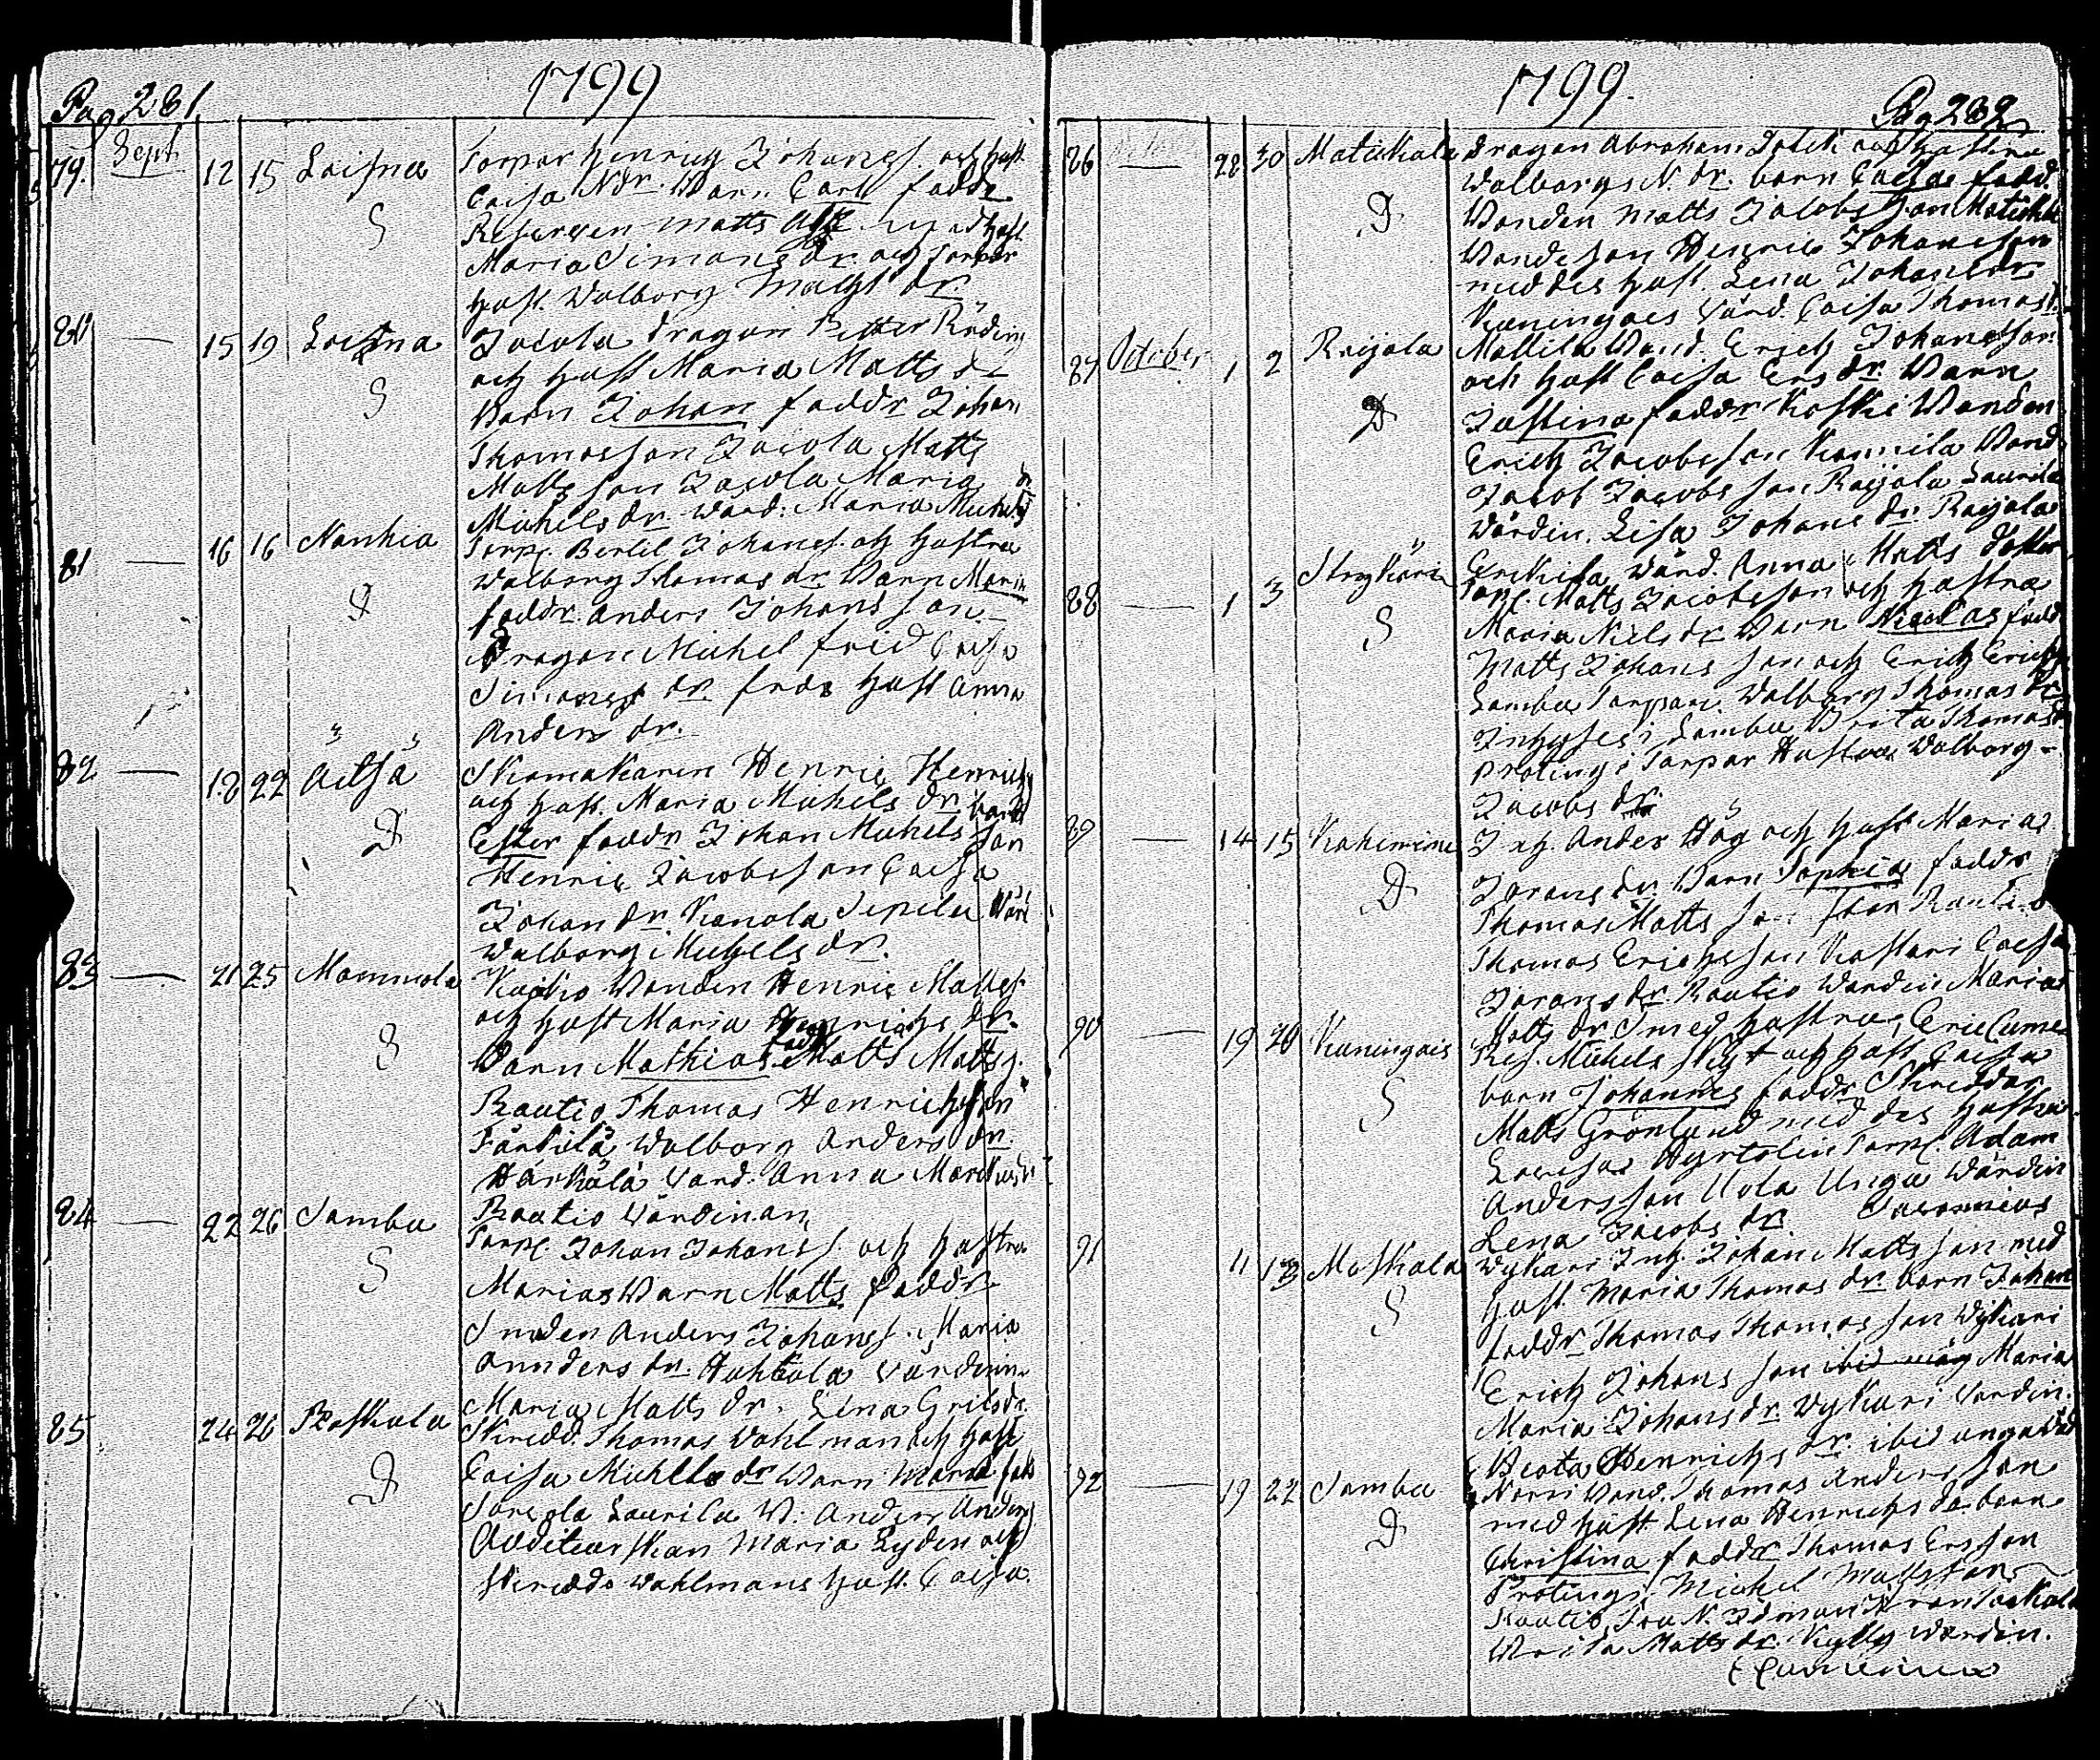 1799
Pag 281
Sept.
79. 12 15 Loisna Torpar Henrich Johans. och hust
S Caisa N. dr. Barn Carl faddr
Reserven Matts med hust
Maria Simons dr. och Torpar
hust. Walborg Matts dr.
80 — 15 19 Loisna Jacola Dragon Petter Röding
S och hust Maria Matts dr
Barn Johan faddr Johan
Thomas son Jacola Matts
Matts son Jacola Maria
Michels dr. Wärd: Maria Michels dr
81 — 16 16 Nanhia Torp. Bertil Johans. och hustru
D Walborg Thomas dr. Barn Maria
faddr. Anders Johans son
Dragon Michel Frid Caisa
Simons dr. Frids hust Anna
Anders dr.
82 — 18 22 Aitsä Skomakaren Henric Henrichs
och hust. Maria Michels dr. barn
D Ester faddr. Johan Michels son
Henric Jacobs son Caisa
Johan dr. Kanola Sepela Wärd
Walborg Michels dr.
83 — 21 25 Mommola Bonden Henric Matts.
och hust Maria Henrichs dr.
S Barn Mathias fadd Matts Matts.
Rautio Thomas Henrichsson
Färkilä Walborg Anders dr.
Härkälä Wärd. Anna Marckus dr
Rautio Wärdinan
84 — 22 26 Sambu Torp. Johan Johans s. och hustru
S Marias Barn Matts faddr
Smeden Anders Johans s. Maria
Annders dr. Huhtala Värdinn
Maria Matts dr. Lena Grils dr.
85 24 26 Poskala Skredd. Thomas Wahlman och hust
D Caisa Michels dr Barn Maria fadd
Laurila W. Anders Anders
Auditeurskan Maria Lyden och
skredd. Wahlmans hust. Caisa.
1799.
Pag 282
86 28 30 Matickala Dragon Abraham och hustru
Walborgs N. dr. barn Caisa fadd.
D Bonden Matts Jacobs son Matickala
Bonde son Henric Johansson
med des hust. Lena Johans dr
Kuningois Värd. Caisa Thomas d.
87 October 1 2 Raijala Mattila Bond. Erich Johansson
och hust Caisa Ers dr. Barn
D Justina faddr Koski Bonden
Erich Jacobsson Kannila Bond
Jacob Jacobs son Raijala Laurila
Wärdin. Lisa Johans dr. Raijala
Erkkilä Wärd. Anna Matts dotter
88 — 1 3 Strykäri Torp. Matts Jacobsson och hustru
S Maria Niels dr Barn Nicolas fadd
Matts Johans son och Erich Erichs
Sambu Torpare. Walborg Thomas dr
Inhyses i Sambu Brita Thomas d
Prolings Torpar Hustru Walborg
Jacobs dr
89 — 14 15 Kahimini Inh. Anders Häg och hust Maria
D Jörans dr. Barn Sophia faddr
Thomas Matts son Rautio
Thomas Erichs son Kastari Caisa
Jörans dr. Rautio Wärdin Maria
Matts dr. Smeds hustru Eric
90 — 19 20 Kuningois Res. Michels och hust Caisa
barn Johannes faddr Skreddar
S Matts Grönlund med des hustru
Lovisa Hyrtolin Torp. Adam
Andersson Uola Unga Wärdin
Lena Jacobs dr.
91 11 13 Moskala Wykari Inh. Johan Matts son med
S hust. Maria Thomas dr. barn Johan
faddr Thomas Thomas son Wykari
Erich Johans son ibid Maria
Maria Johans dr. Wykari Vardin.
Beata Henrichs dr. ibid unga Vard
92 — 19 22 Sambu Norri Bond. Thomas Anders son
med hust. Lena Henrichs dr barn
D Christina faddr Thomas Ersson
Prolings Michel Mattsson
Rautio, Fru N. Idman
Brita Matts dr. Kylly Wärdin.